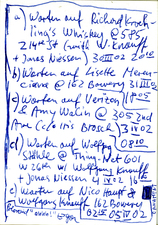 a) Warten auf Richard Kroeh-
ling's Whiskey @ 585
214th St (with W. Knauff
+ Jonas Niessen) 30 III 02 20 10
b) Warten auf Lisette
@ 162 Bowery 31 III 02
c) Warten auf Verizon 11 05
& Amy Wallin @ 305 2nd
Ave Iris Brosch 3 IV 02
d) Warten auf Wolfgang
Stähle @ Thing.Net 601
W 26th w/ Wolfgang Knauff
+ Jonas Niessen 4 IV 02 16 15
e) Warten auf Nico Haupt &
Wolfgang Knauff 162 Bowery
02 15 05 IV 02